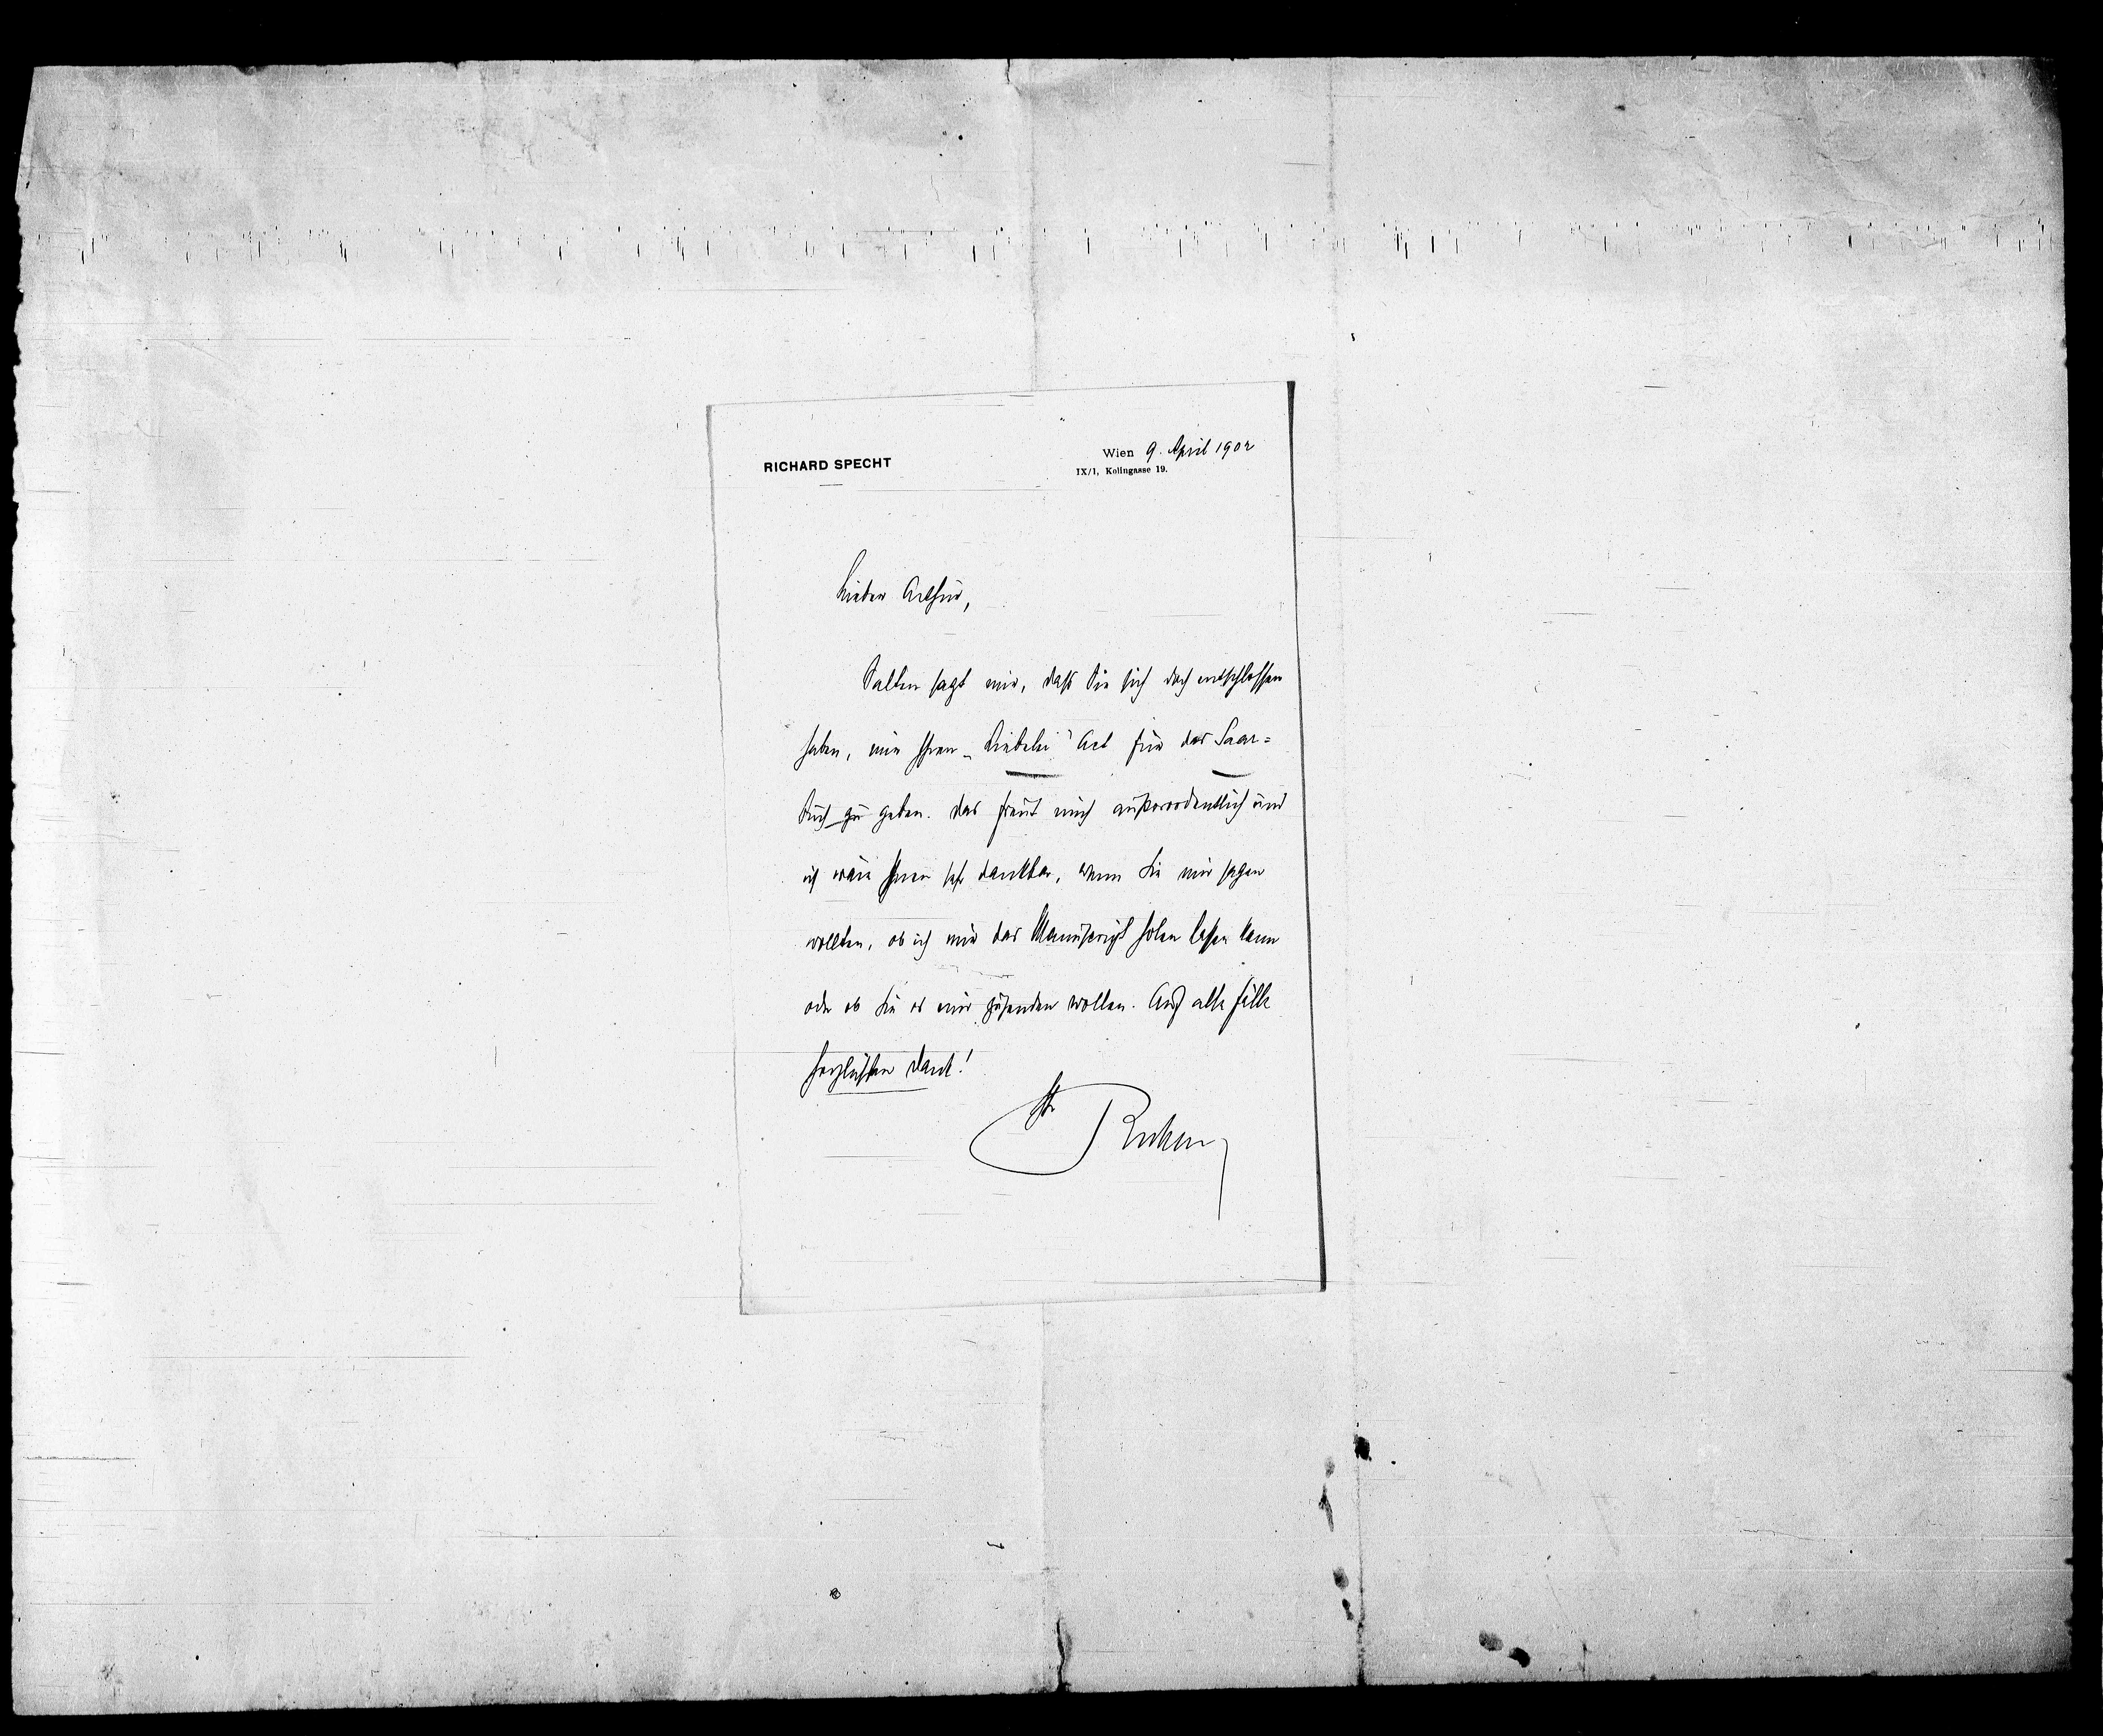 RICHARD SPECHT
Wien 9. April 1902
IX/1, Kolingasse 19.
Lieber Arthur,
Salten sagt mir, daß Sie sich doch entschlossen
haben, mir Ihren „Liebelei" Act für das Saar=
buch zu geben. Das freut mich außerordentlich und
ich wäre Ihnen sehr dankbar, wenn Sie mir sagen
wollten, ob ich mir das Manuscript holen lassen kann
oder ob Sie es mir zusenden wollen. Auf alle Fälle
herzlichsten Dank!
Ihr